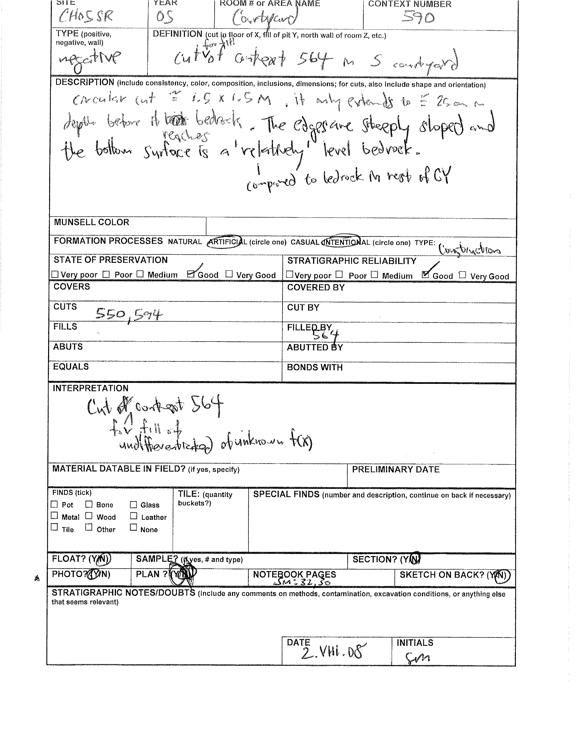 SITE YEAR ROOM # or AREA NAME CONTEXT NUMBER
CH05SR 05 Courtyard 590
TYPE (positive, negative, wall)
negative
DEFINITION (cut in floor of X, fill of pit Y, north wall of room Z, etc.)
for fill
Cut of context 564 in S courtyard
DESCRIPTION (include consistency, color, composition, inclusions, dimensions; for cuts, also include shape and orientation)
circular cut ≅ 1.5 x 1.5 M. it only extends to ≅ 25cm in
depth before it reaches bedrock. The edges are steeply sloped and
the bottom surface is a 'relatively' level bedrock.
compared to bedrock in rest of CY
MUNSELL COLOR
FORMATION PROCESSES NATURAL ARTIFICIAL (circle one) CASUAL INTENTIONAL (circle one) TYPE: Construction
STATE OF PRESERVATION
Very poor Poor Medium Good Very Good
STRATIGRAPHIC RELIABILITY
Very poor Poor Medium Good Very Good
COVERS COVERED BY
CUTS 550, 594 CUT BY
FILLS FILLED BY 564
ABUTS ABUTTED BY
EQUALS BONDS WITH
INTERPRETATION
Cut of context 564
for fill of
undifferentiated of unknown f(x)
MATERIAL DATABLE IN FIELD? (if yes, specify) PRELIMINARY DATE
FINDS (tick)
Pot Bone Glass
Metal Wood Leather
Tile Other None
TILE: (quantity buckets?)
SPECIAL FINDS (number and description, continue on back if necessary)
FLOAT? (Y/N) SAMPLE? (if yes, # and type) SECTION? (Y/N)
PHOTO? (Y/N) PLAN? (Y/N) NOTEBOOK PAGES SM: 32, 30 SKETCH ON BACK? (Y/N)
STRATIGRAPHIC NOTES/DOUBTS (include any comments on methods, contamination, excavation conditions, or anything else
that seems relevant)
DATE INITIALS
2.VIII.05 SM